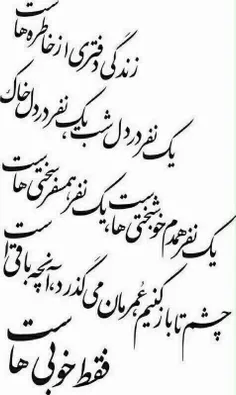 زندگی دفتری از خاطره هاست
یک نفر در دل شب، یک نفر در دل خاک
یک نفر همدم خوشبختی هاست، یک نفر همسفر سختی هاست
چشم تا باز کنیم، عمرمان می گذرد، آنچه باقی است
فقط خوبی هاست